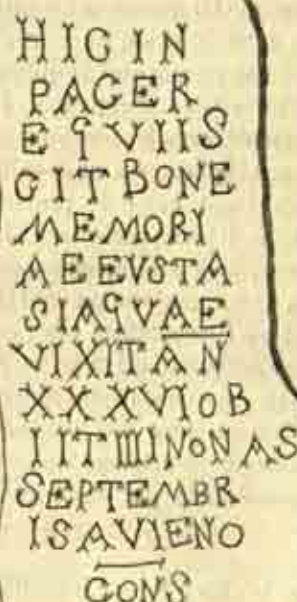 HIC IN
PACE R
EQVIIS
CIT BONE
MEMORI
AE EVSTA
SIA QVAE
VIXIT AN
XXXVI OB
IIT IIII NONAS
SEPTEMBR
IS AVIENO
CONS